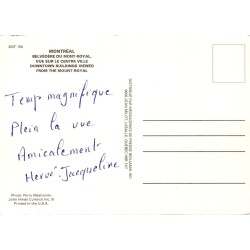 2DT 156
MONTRÉAL
BELVÉDÈRE DU MONT-ROYAL,
VUE SUR LE CENTRE VILLE
DOWNTOWN BUILDINGS VIEWED
FROM THE MOUNT-ROYAL
Temp magnifique
Plein la vue
Amicalement
Hervé. Jacqueline
Photo: Perry Mastrovito
John Hinde Curteich Inc. ®
Printed in the U.S.A.